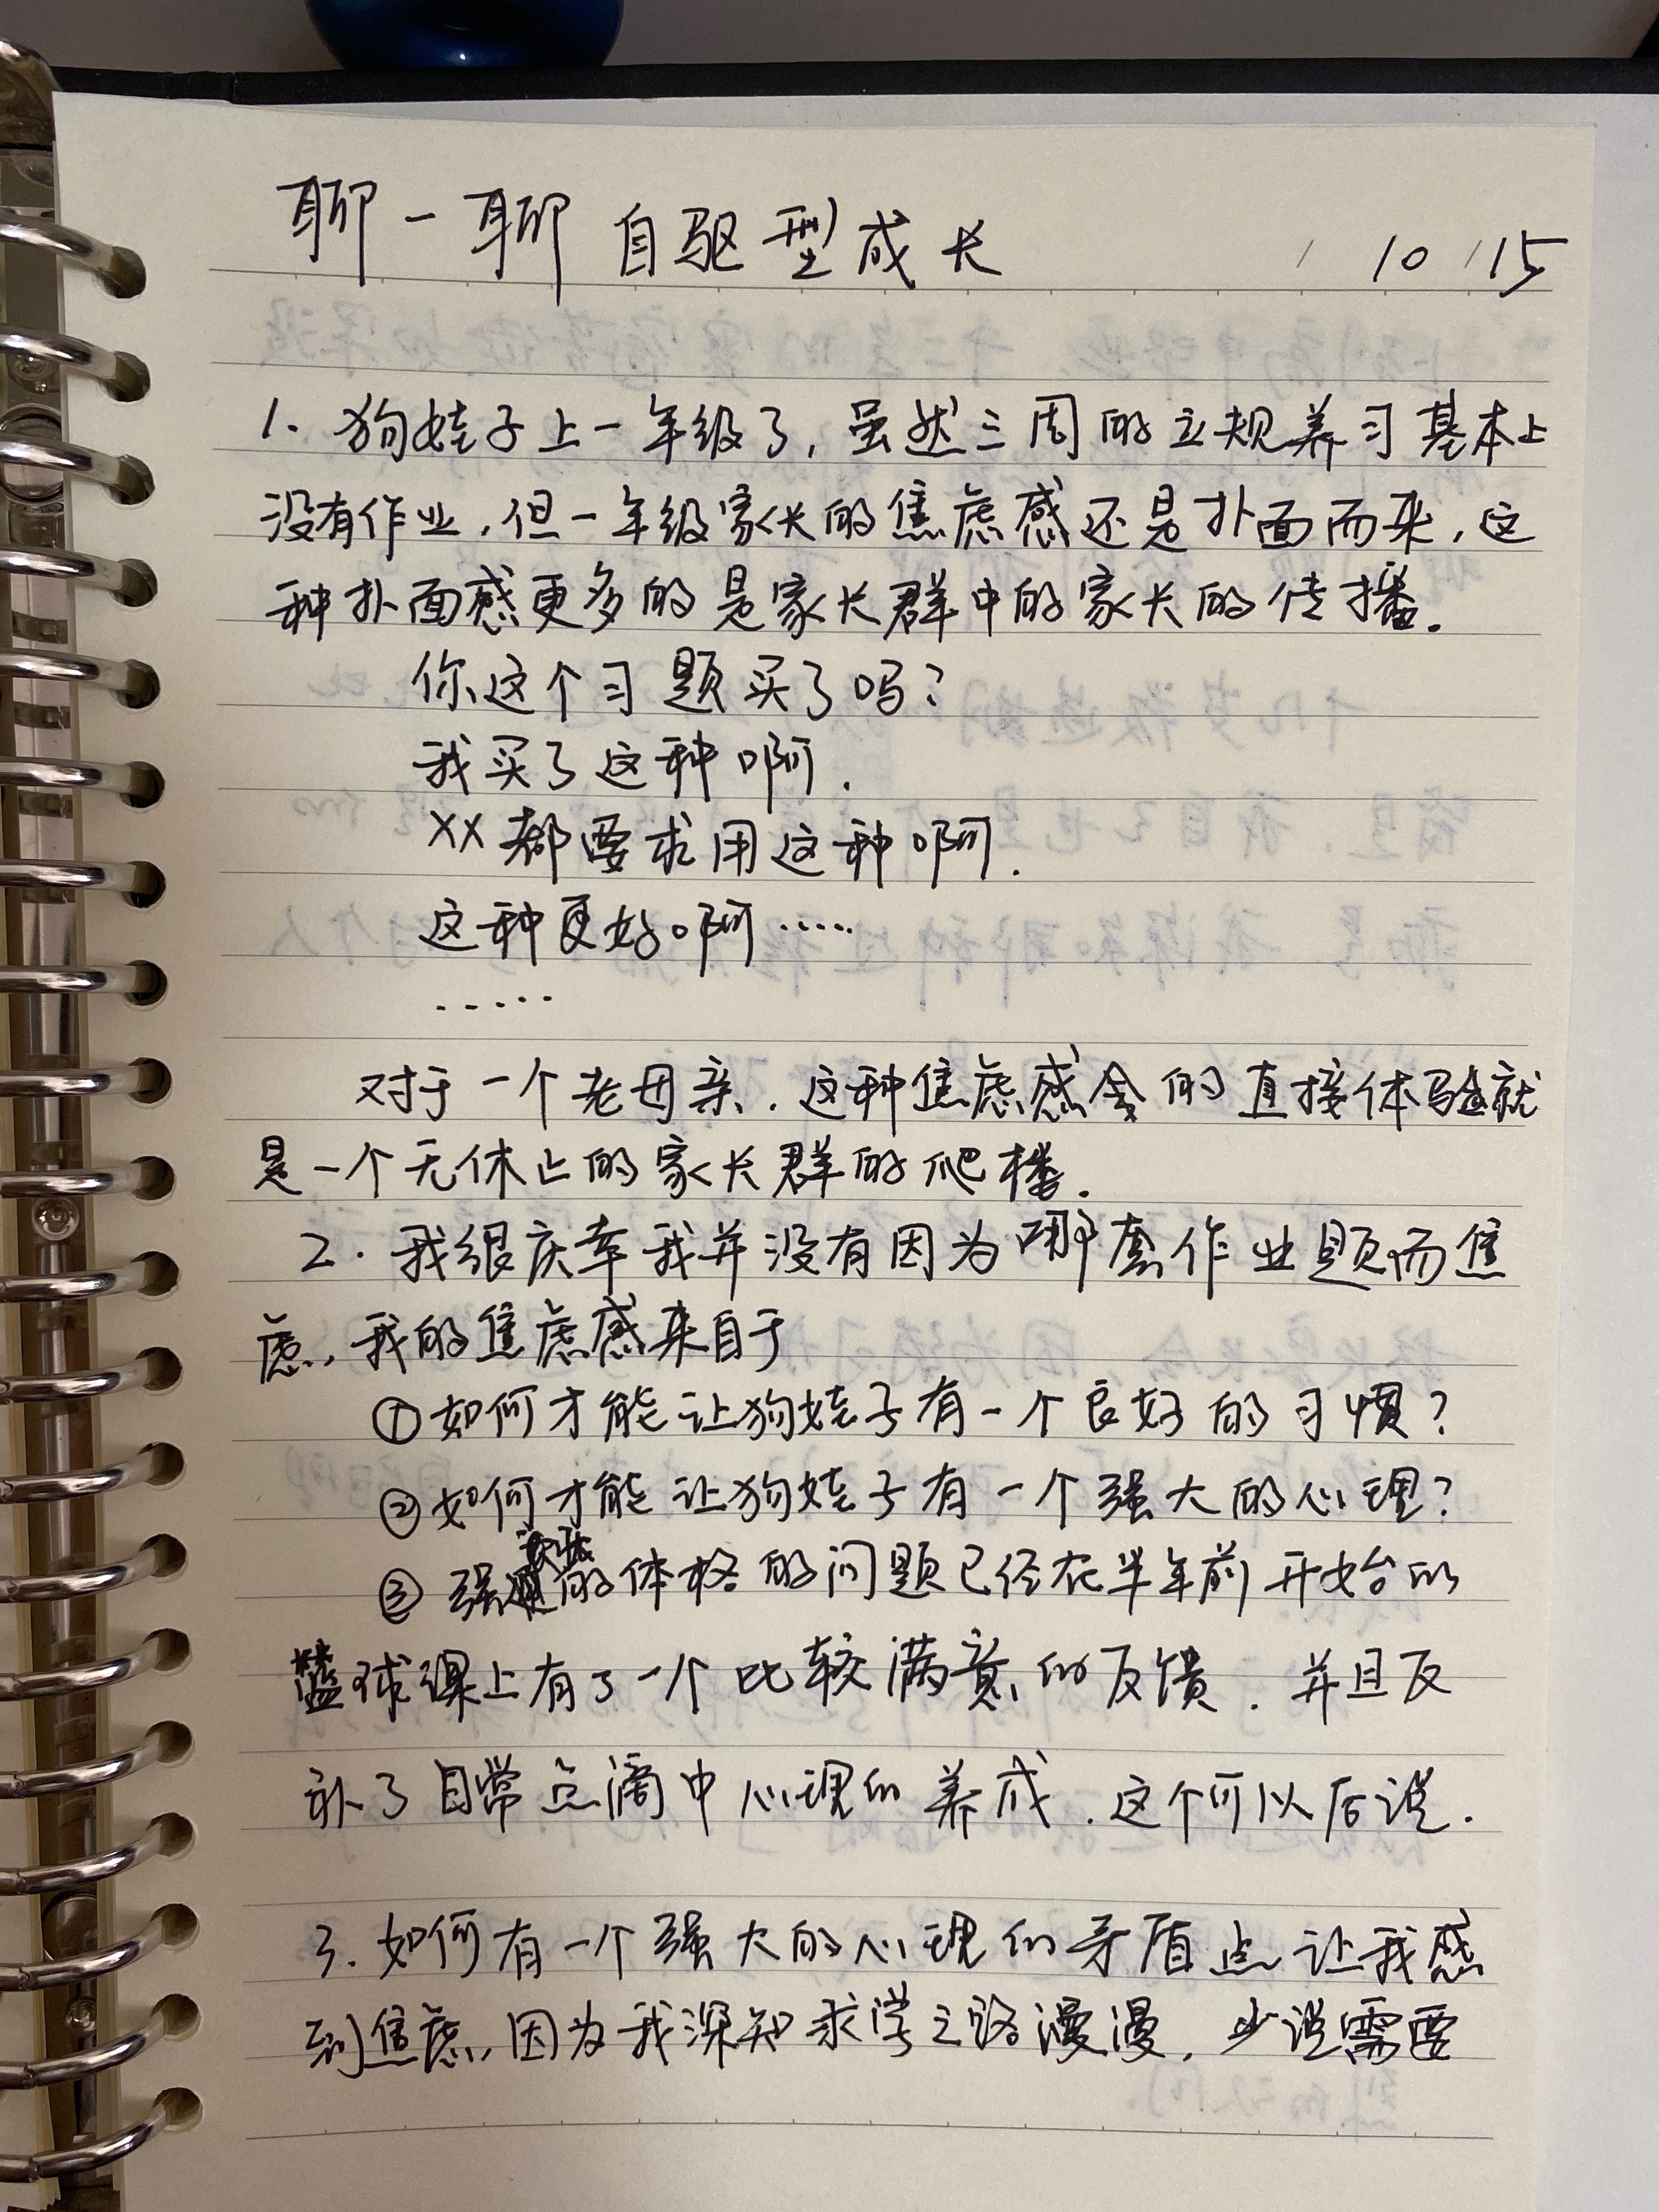 聊一聊 自驱型成长 / 10 / 15
1. 狗娃子上一年级了，虽然三周的立规养习基本上
没有作业，但一年级家长的焦虑感还是扑面而来，这
种扑面感更多的是家长群中的家长的传播。
你这个习题买了吗？
我买了这种啊.
XX都要求用这种啊.
这种更好啊……
……
对于一个老母亲，这种焦虑感会的直接体验就
是一个无休止的家长群的爬楼.
2. 我很庆幸我并没有因为哪套作业题而焦
虑，我的焦虑感来自于
①如何才能让狗娃子有一个良好的习惯？
②如何才能让狗娃子有一个强大的心理？
③ 强的体格的问题已经在半年前开始的
篮球课上有了一个比较满意的反馈，并且反
补了日常点滴中心理的养成，这个可以后说.
3. 如何有一个强大的心理的矛盾点让我感
到焦虑，因为我深知求学之路漫漫，少说需要